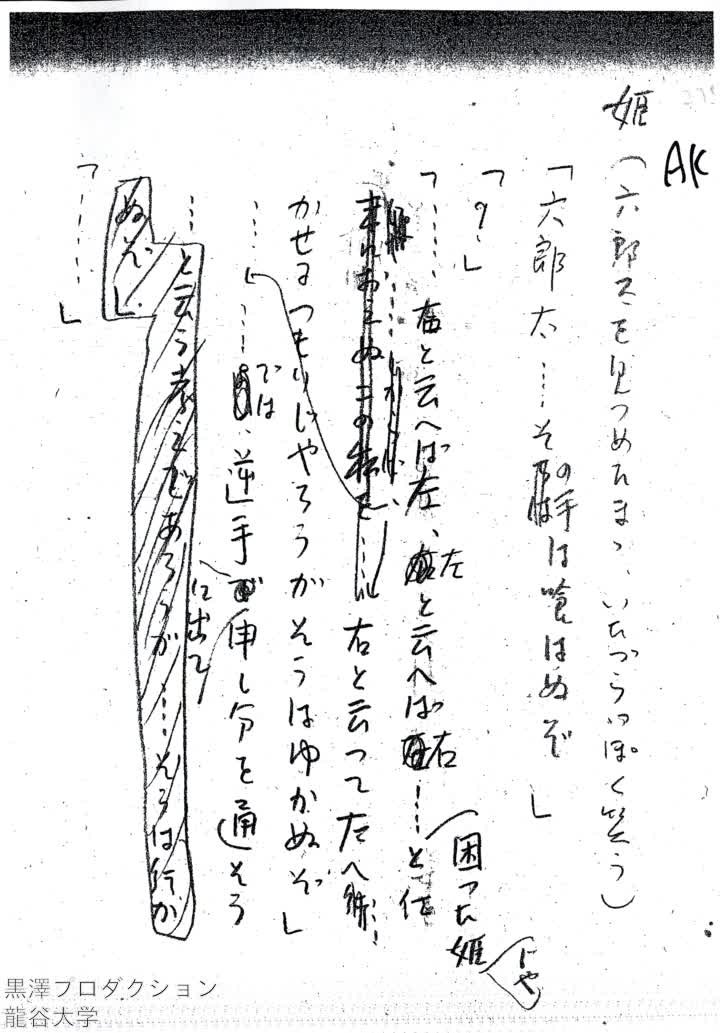 AK
姫(六郎太を見つめたまゝ、いたづらっぽく笑う)
「六郎太……その手は喰はぬぞ」
「?」
「……右と云へば左、左と云へば右……と
困った姫じゃ
右と云って左へ
かせるつもりじやろうがそうはゆかぬぞ」
……では、逆手に出て申し分を通そう
……と云う考えであろうが…そうは行か
ぬぞ」
「……」
黒澤プロダクション
龍谷大学